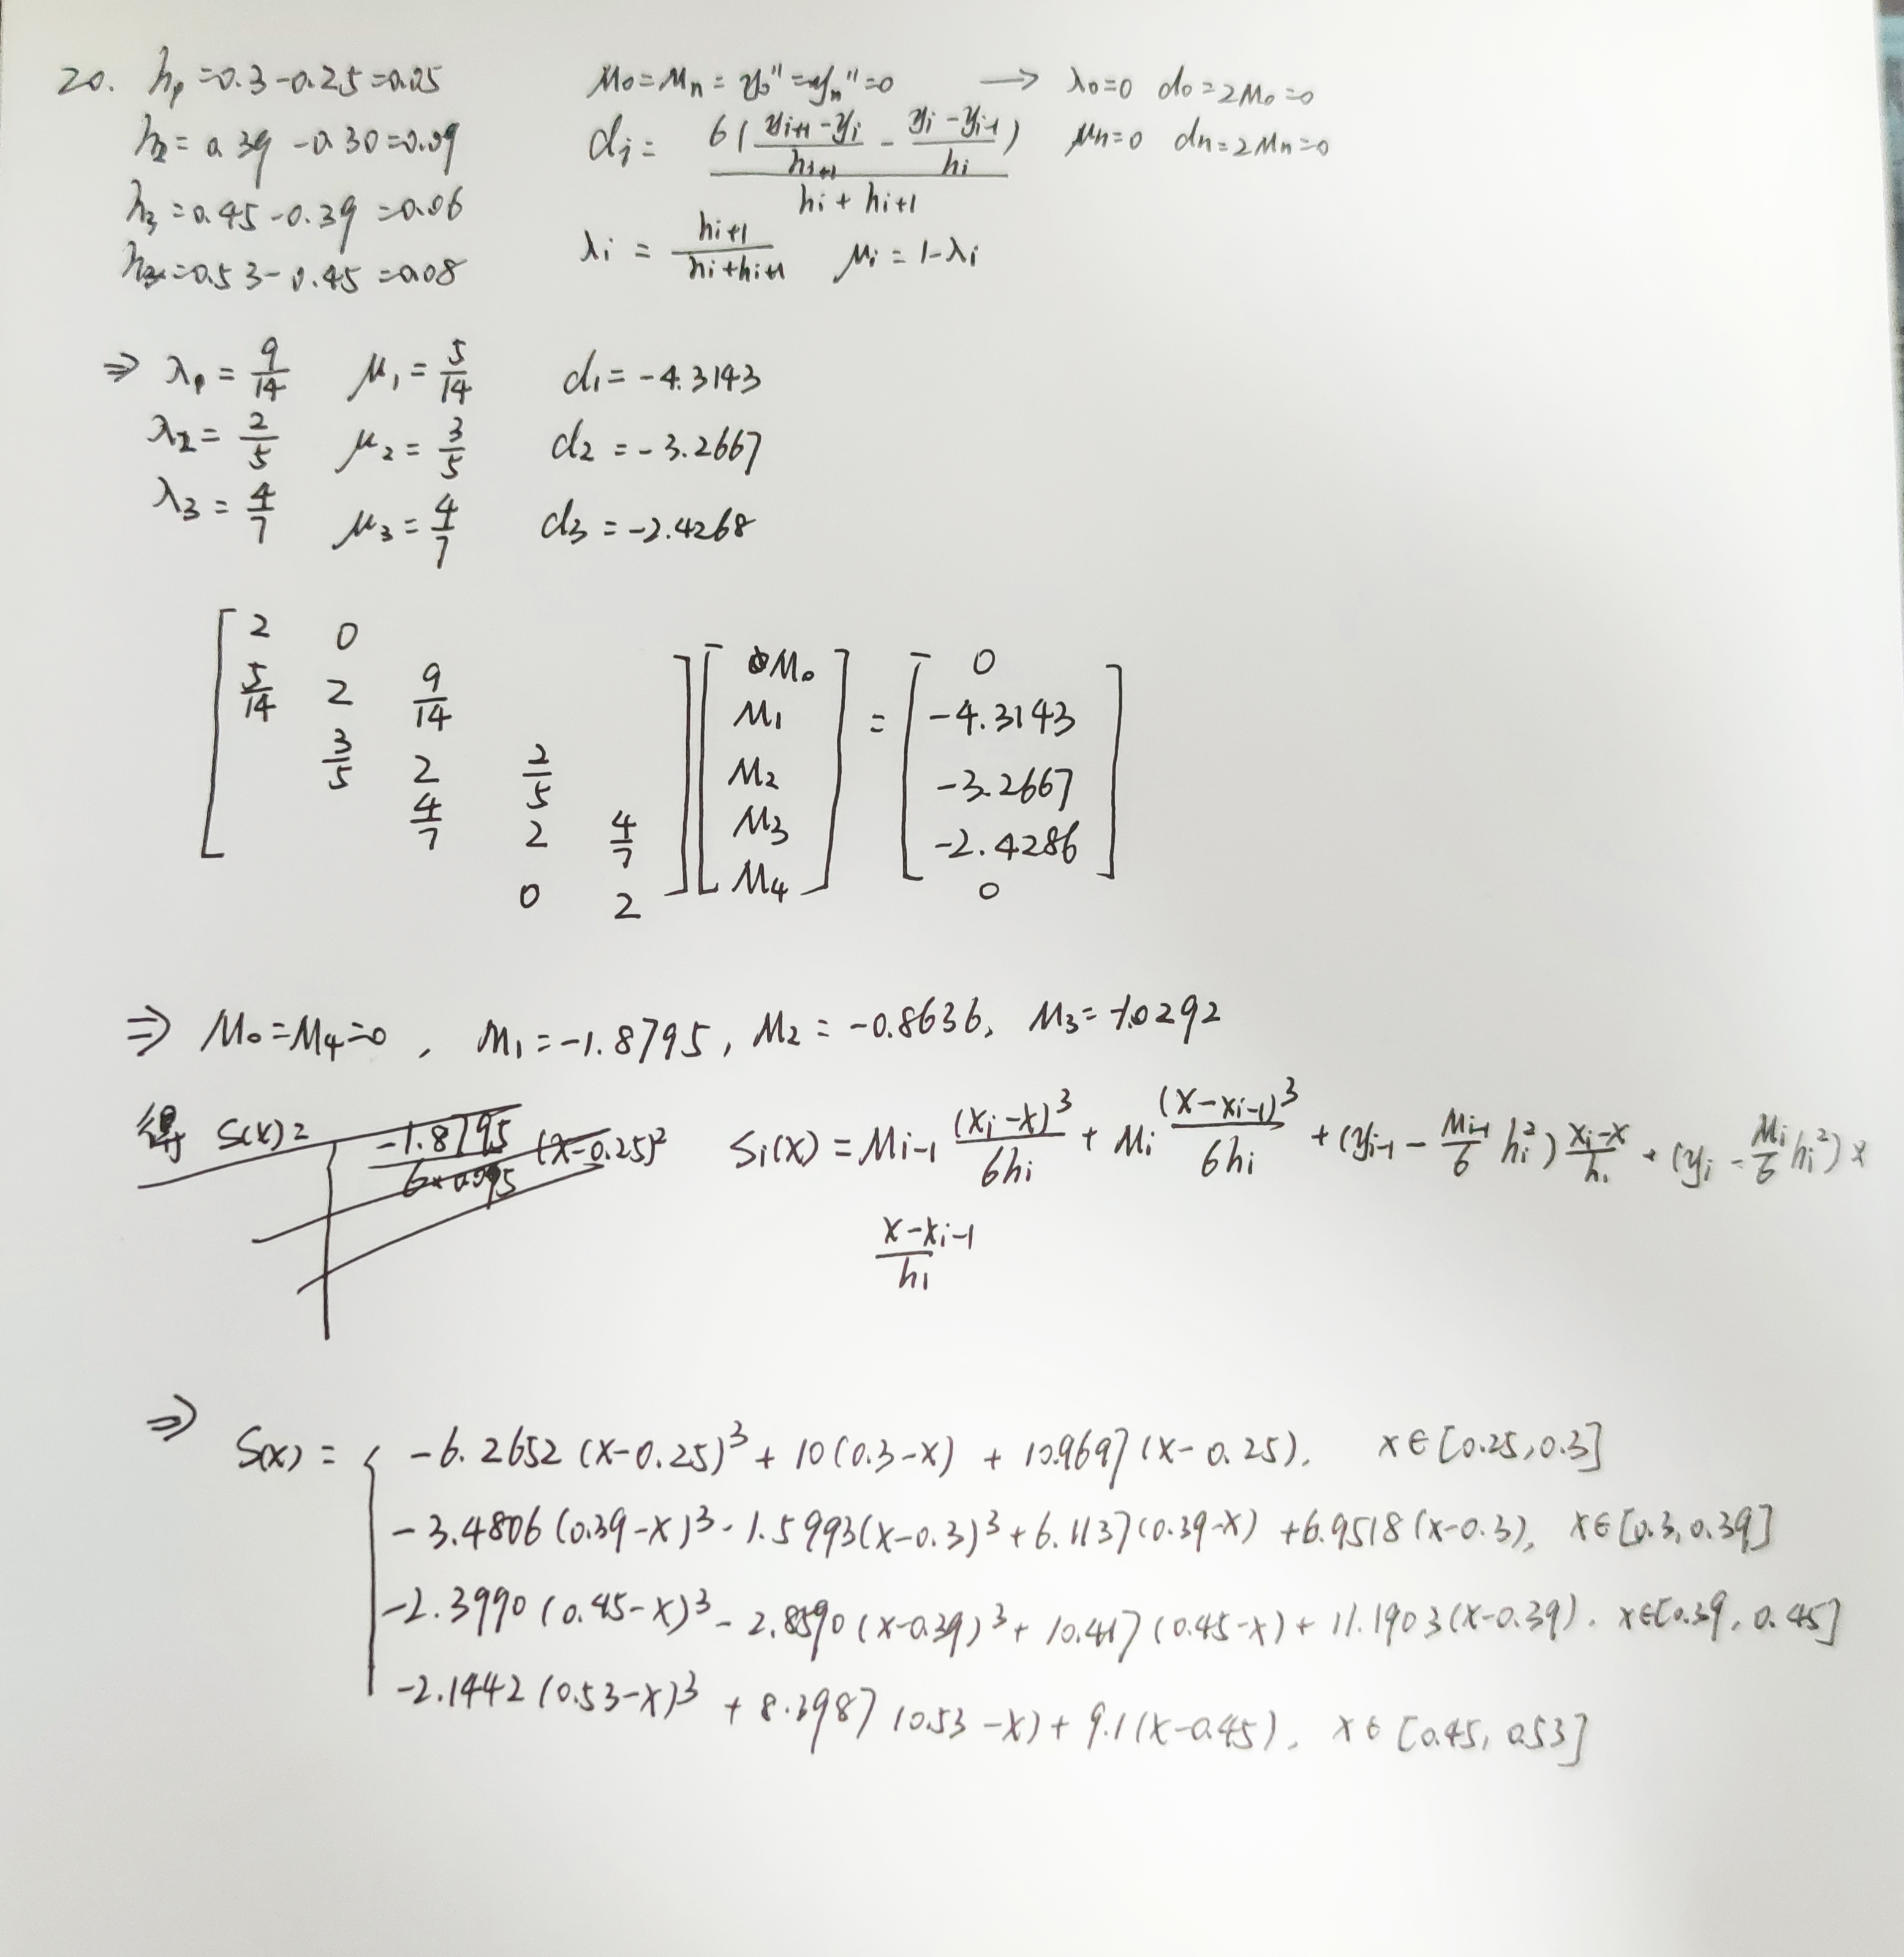 20. h₁=0.3-0.25=0.05
h₂=0.39-0.30=0.09
h₃=0.45-0.39=0.06
=0.53-0.45=0.08
M₀=Mₙ=y₀''=yₙ''=0 → λ₀=0 d₀=2M₀=0
dᵢ= 6((yᵢ₊₁-yᵢ)/hᵢ₊₁ - (yᵢ-yᵢ₋₁)/hᵢ)/(hᵢ+hᵢ₊₁) μₙ=0 dₙ=2Mₙ=0
λᵢ = hᵢ₊₁/(hᵢ+hᵢ₊₁) μᵢ=1-λᵢ
⇒ λ₁=9/14 μ₁=5/14 d₁=-4.3143
λ₂=2/5 μ₂=3/5 d₂=-3.2667
λ₃=4/7 μ₃=4/7 d₃=-2.4268
[2 0
5/14 2 9/14
3/5 2 2/5
4/7 2 4/7
0 2]
[M₀
M₁
M₂
M₃
M₄]
=
[0
-4.3143
-3.2667
-2.4286
0]
⇒ M₀=M₄=0, M₁=-1.8795, M₂=-0.8636, M₃=-1.0292
得 S(x)= -1.8795/(6×0.095) (x-0.25)²
Sᵢ(x)=Mᵢ₋₁ (xᵢ-x)³/6hᵢ + Mᵢ (x-xᵢ₋₁)³/6hᵢ + (yᵢ₋₁ - Mᵢ₋₁/6 hᵢ²) (xᵢ-x)/hᵢ + (yᵢ - Mᵢ/6 hᵢ²) ×
(x-xᵢ₋₁)/hᵢ
⇒ S(x) = { -6.2652(x-0.25)³+10(0.3-x)+10.9697(x-0.25), x∈[0.25,0.3]
-3.4806(0.39-x)³-1.5993(x-0.3)³+6.1137(0.39-x)+6.9518(x-0.3), x∈[0.3,0.39]
-2.3990(0.45-x)³-2.8590(x-0.39)³+10.417(0.45-x)+11.1903(x-0.39). x∈[0.39,0.45]
-2.1442(0.53-x)³+8.3987(0.53-x)+9.1(x-0.45), x∈[0.45,0.53]